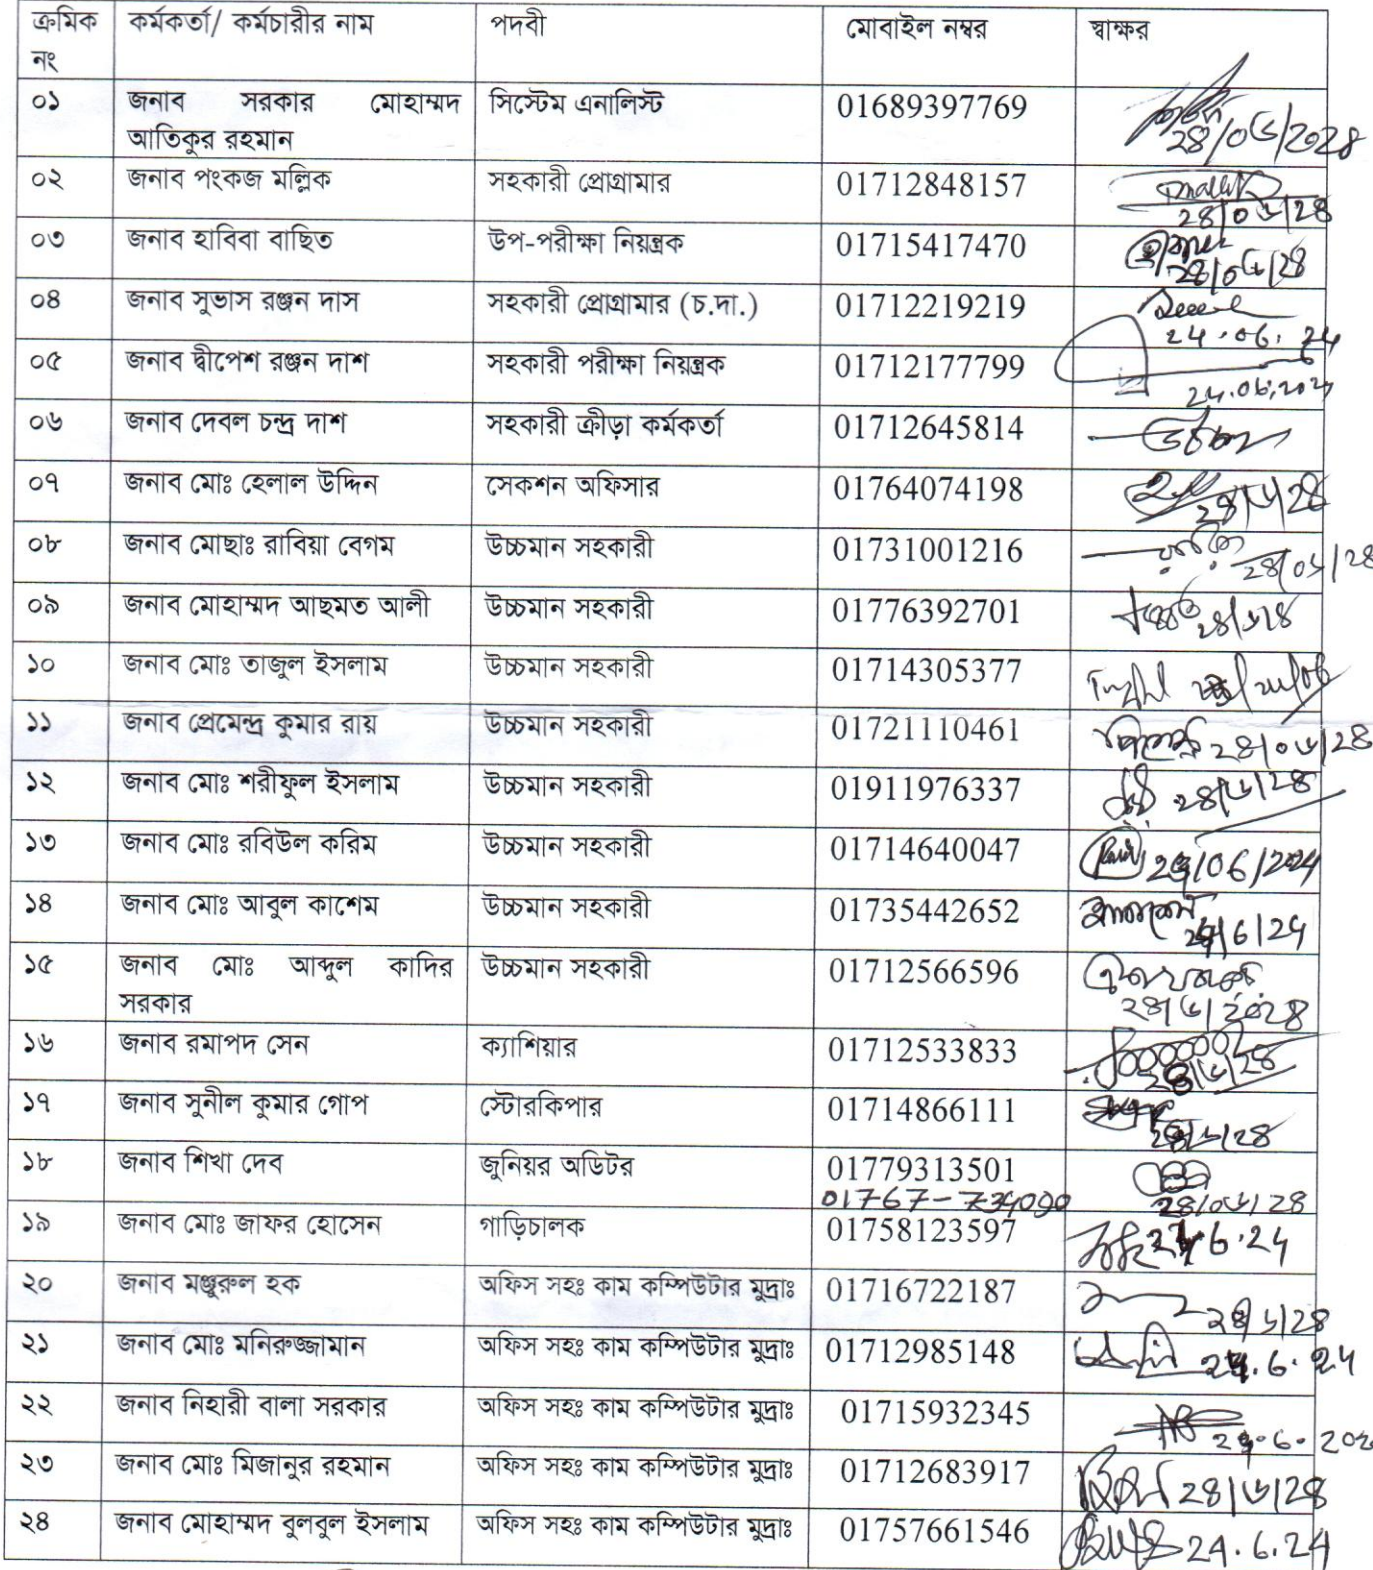 ক্রমিক নং কর্মকর্তা/ কর্মচারীর নাম পদবী মোবাইল নম্বর স্বাক্ষর
০১ জনাব সরকার মোহাম্মদ আতিকুর রহমান সিস্টেম এনালিস্ট 01689397769 ২৪/০৬/২০২৪
০২ জনাব পংকজ মল্লিক সহকারী প্রোগ্রামার 01712848157 ২৪/০৬/২৪
০৩ জনাব হাবিবা বাছিত উপ-পরীক্ষা নিয়ন্ত্রক 01715417470 ২৪/০৬/২৪
০৪ জনাব সুভাস রঞ্জন দাস সহকারী প্রোগ্রামার (চ.দা.) 01712219219 24.06.24
০৫ জনাব দ্বীপেশ রঞ্জন দাশ সহকারী পরীক্ষা নিয়ন্ত্রক 01712177799 24.06.2024
০৬ জনাব দেবল চন্দ্র দাশ সহকারী ক্রীড়া কর্মকর্তা 01712645814
০৭ জনাব মোঃ হেলাল উদ্দিন সেকশন অফিসার 01764074198 ২৪/৬/২৪
০৮ জনাব মোছাঃ রাবিয়া বেগম উচ্চমান সহকারী 01731001216 ২৪/০৬/২৪
০৯ জনাব মোহাম্মদ আছমত আলী উচ্চমান সহকারী 01776392701 ২৪/৬/২৪
১০ জনাব মোঃ তাজুল ইসলাম উচ্চমান সহকারী 01714305377
১১ জনাব প্রেমেন্দ্র কুমার রায় উচ্চমান সহকারী 01721110461 ২৪/০৬/২৪
১২ জনাব মোঃ শরীফুল ইসলাম উচ্চমান সহকারী 01911976337 ২৪/৬/২৪
১৩ জনাব মোঃ রবিউল করিম উচ্চমান সহকারী 01714640047 24/06/2024
১৪ জনাব মোঃ আবুল কাশেম উচ্চমান সহকারী 01735442652 24/6/24
১৫ জনাব মোঃ আব্দুল কাদির সরকার উচ্চমান সহকারী 01712566596 ২৪/৬/২০২৪
১৬ জনাব রমাপদ সেন ক্যাশিয়ার 01712533833 ২৪/৬/২৪
১৭ জনাব সুনীল কুমার গোপ স্টোরকিপার 01714866111 ২৪/৬/২৪
১৮ জনাব শিখা দেব জুনিয়র অডিটর 01779313501 ২৪/০৬/২৪
01767-734090
১৯ জনাব মোঃ জাফর হোসেন গাড়িচালক 01758123597 24.6.24
২০ জনাব মঞ্জুরুল হক অফিস সহঃ কাম কম্পিউটার মুদ্রাঃ 01716722187 ২৪/৬/২৪
২১ জনাব মোঃ মনিরুজ্জামান অফিস সহঃ কাম কম্পিউটার মুদ্রাঃ 01712985148 24.6.24
২২ জনাব নিহারী বালা সরকার অফিস সহঃ কাম কম্পিউটার মুদ্রাঃ 01715932345
২৩ জনাব মোঃ মিজানুর রহমান অফিস সহঃ কাম কম্পিউটার মুদ্রাঃ 01712683917 ২৪/৬/২৪
২৪ জনাব মোহাম্মদ বুলবুল ইসলাম অফিস সহঃ কাম কম্পিউটার মুদ্রাঃ 01757661546 24.6.24